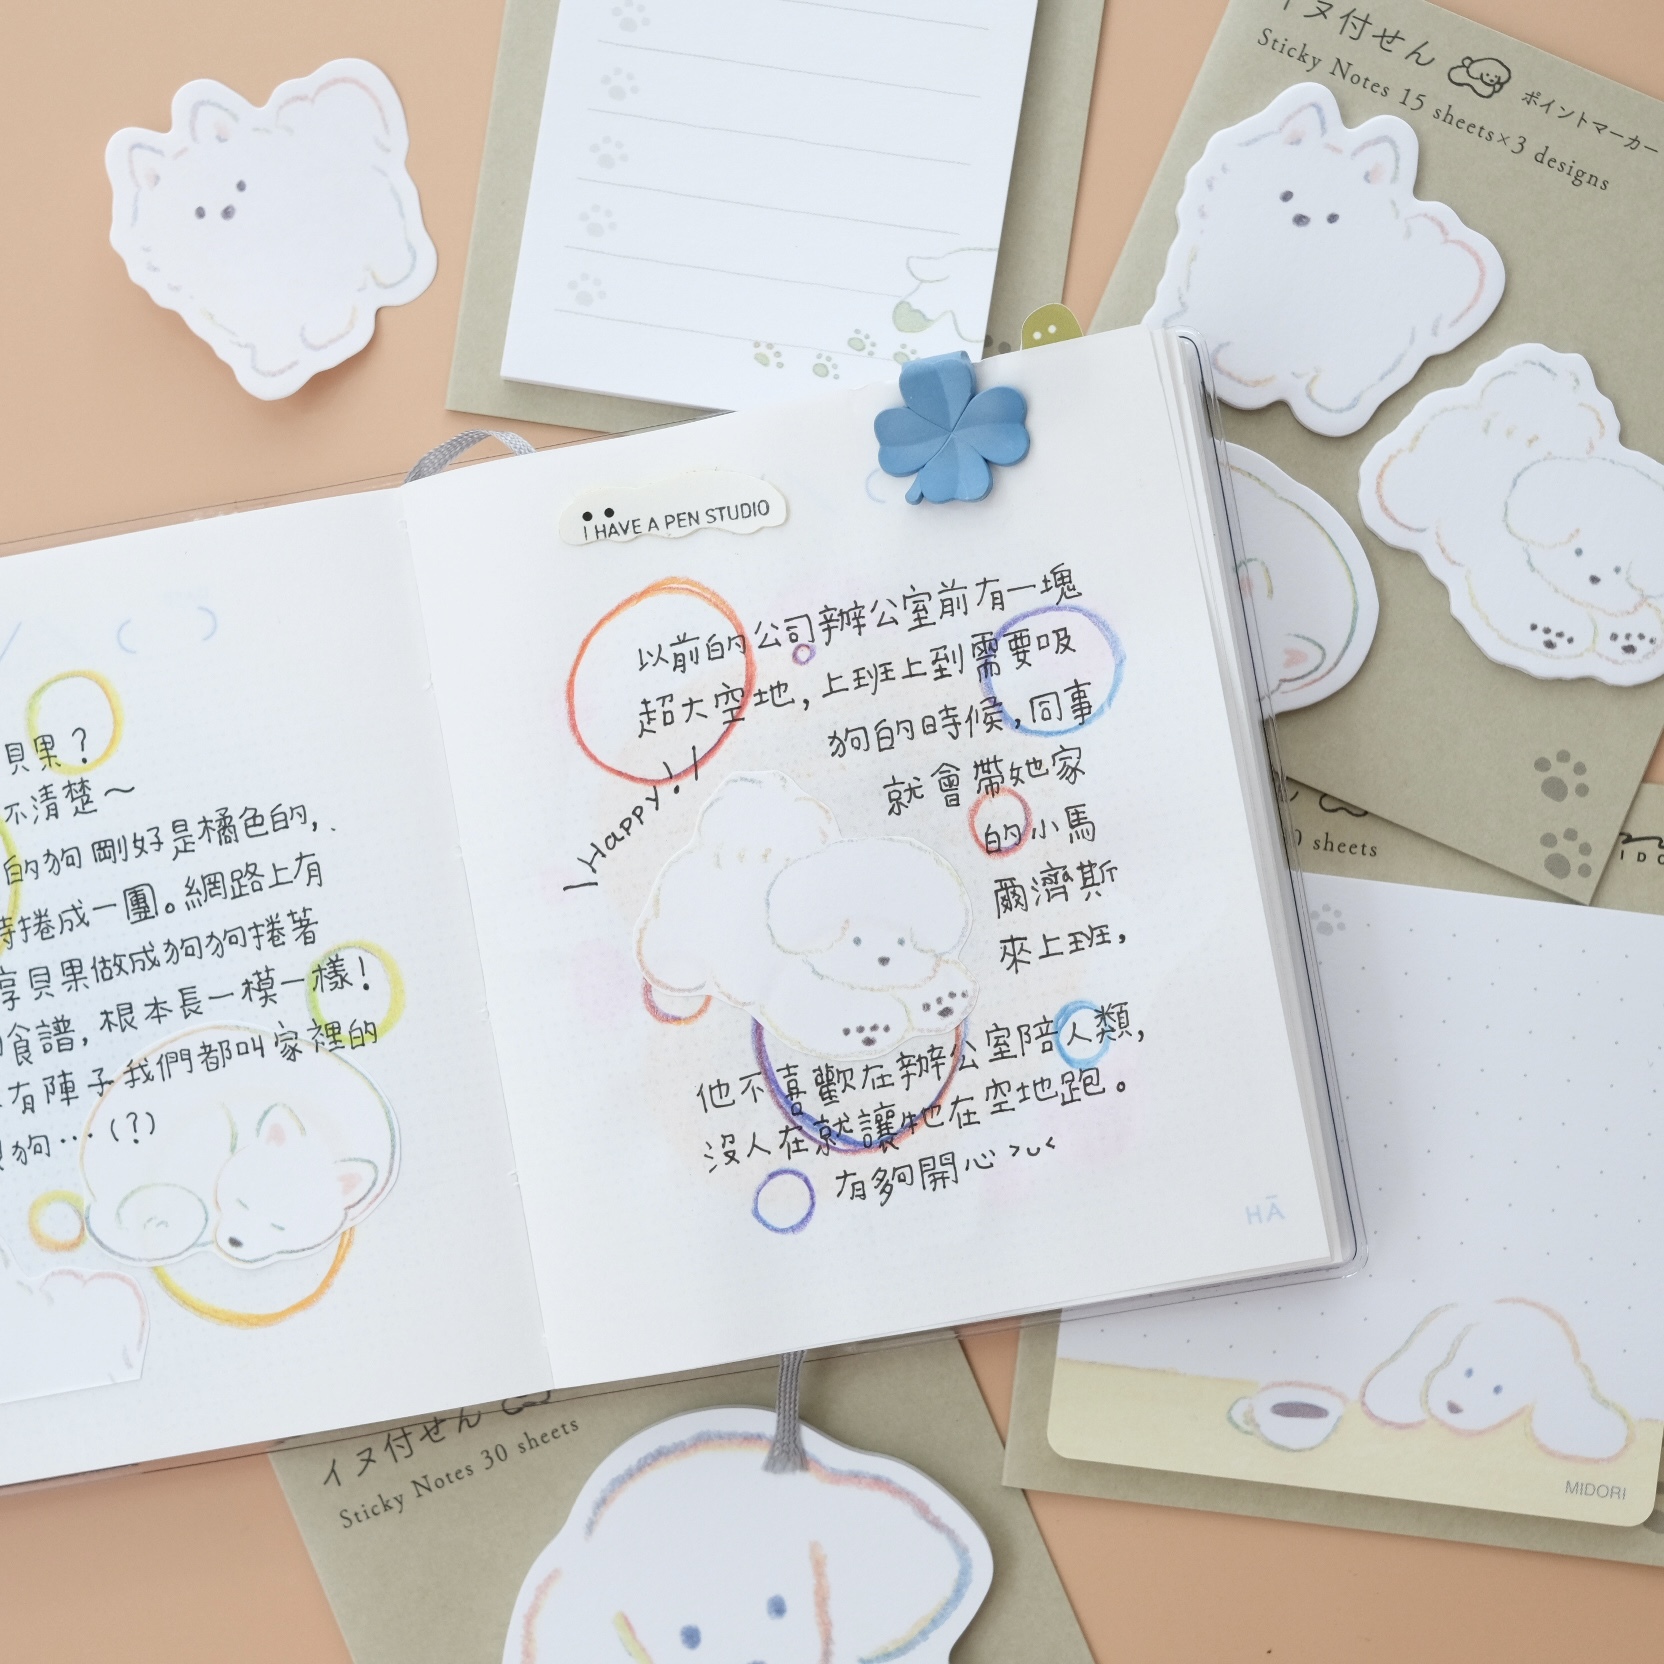 イヌ付せん
ポイントマーカー
Sticky Notes 15 sheets×3 designs
I HAVE A PEN STUDIO
貝果？
不清楚～
的狗剛好是橘色的，
捲成一團。網路上有
享貝果做成狗狗捲著
食譜，根本長一模一樣！
有陣子我們都叫家裡的
狗…（?）
以前的公司辦公室前有一塊
超大空地，上班上到需要吸
狗的時候，同事
就會帶她家
的小馬
爾濟斯
來上班，
Happy!
他不喜歡在辦公室陪人類，
沒人在就讓牠在空地跑。
有夠開心 >u<
HĀ
0 sheets
MIDORI
イヌ付せん
Sticky Notes 30 sheets